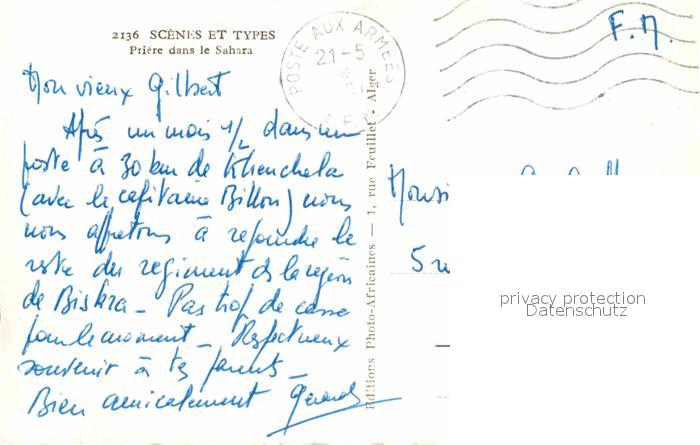 2136 SCÈNES ET TYPES
Prière dans le Sahara
POSTE AUX ARMÉES
21-5
A.F.N
F.M.
Mon vieux Gilbert
Après un mois 1/2 dans un
poste à 30 km de Khenchela
(avec le capitaine Billon) nous
nous apprêtons à rejoindre le
reste du regiment ds la région
de Biskra _ Pas trop de casse
pour le moment _ Respectueux
souvenir à tes parents _
Bien amicalement Gérard
Editions Photo-Africaines — 1, rue Feuillet - Alger
Monsi
5 r
privacy protection
Datenschutz